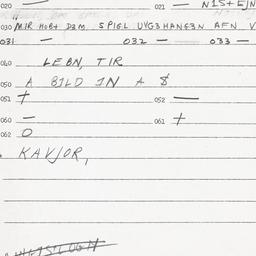 020 — 021 — NIST EJN
030 MIR HOBN DEM SPIGL UVGEHANGEN AFN V
031 — 032 — 033 —
040 LEBN, TIR
050 A BILD IN A $
051 + 052 —
060 — 061 +
062 O
KAVJOR,